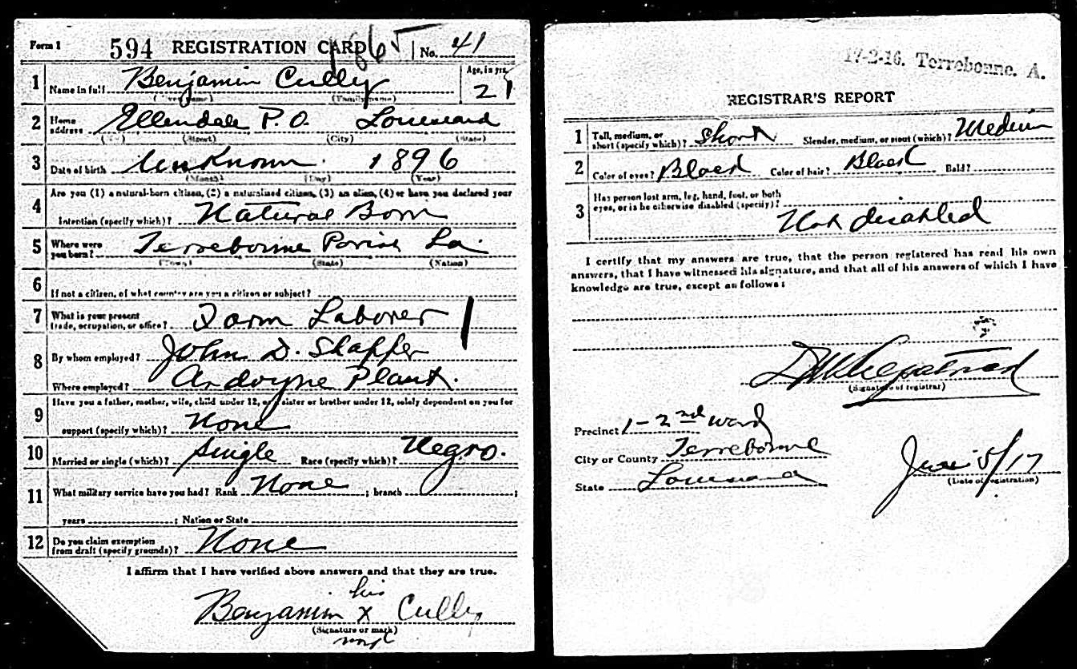 Form 1 594 REGISTRATION CARD 1865 No. 41
1 Name in full Benjamin Cully Age, in yrs. 21
(Given name) (Family name)
2 Home address Ellendale P.O. Louisiana
(No.) (Street) (City) (State)
3 Date of birth Unknown. 1896
(Month) (Day) (Year)
4 Are you (1) a natural-born citizen, (2) a naturalized citizen, (3) an alien, (4) or have you declared your
intention (specify which)? Natural Born
5 Where were you born? Terrebonne Parish La.
(Town) (State) (Nation)
6 If not a citizen, of what country are you a citizen or subject?
7 What is your present trade, occupation, or office? Farm Laborer
8 By whom employed? John D. Shaffer
Where employed? Ardoyne Plant.
9 Have you a father, mother, wife, child under 12, or a sister or brother under 12, solely dependent on you for
support (specify which)? None
10 Married or single (which)? Single Race (specify which)? Negro.
11 What military service have you had? Rank None ; branch ;
years ; Nation or State
12 Do you claim exemption from draft (specify grounds)? None
I affirm that I have verified above answers and that they are true.
his
Benjamin X Cully
(Signature or mark)
mark
17-2-16. Terrebonne. A.
REGISTRAR'S REPORT
1 Tall, medium, or short (specify which)? Short Slender, medium, or stout (which)? Medium
2 Color of eyes? Black Color of hair? Black Bald?
3 Has person lost arm, leg, hand, foot, or both
eyes, or is he otherwise disabled (specify)?
Not disabled
I certify that my answers are true, that the person registered has read his own
answers, that I have witnessed his signature, and that all of his answers of which I have
knowledge are true, except as follows:
(Signature of registrar)
Precinct 1-2nd ward
City or County Terrebonne
State Louisiana
June 5/17
(Date of registration)